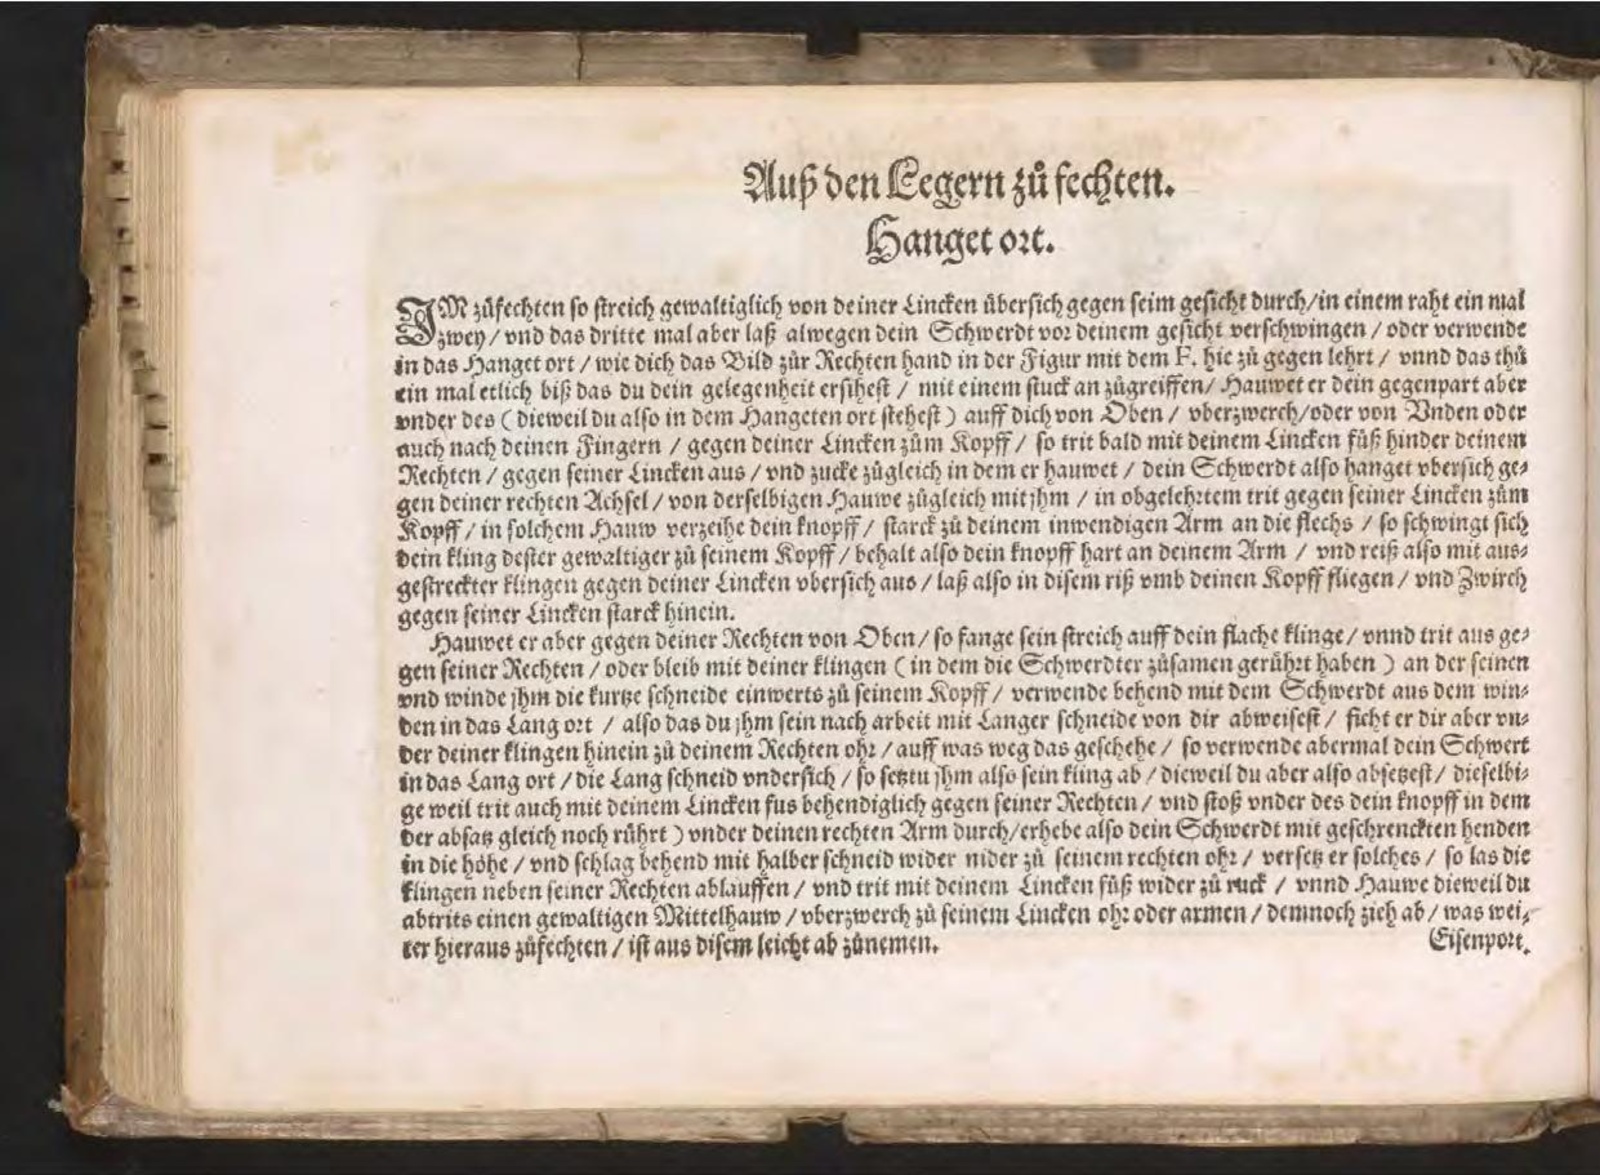 Auß den Legern zů fechten.
Hanget ort.
IM zůfechten so streich gewaltiglich von deiner Lincken übersich gegen seim gesicht durch/ in einem raht ein mal
zwey/ vnd das dritte mal aber laß alwegen dein Schwerdt vor deinem gesicht verschwingen/ oder verwende
in das Hanget ort/ wie dich das Bild zůr Rechten hand in der Figur mit dem F. hie zů gegen lehrt/ vnnd das thů
ein mal etlich biß das du dein gelegenheit ersihest/ mit einem stuck an zůgreiffen/ Hauwet er dein gegenpart aber
vnder des (dieweil du also in dem Hangeten ort stehest) auff dich von Oben/ vberzwerch/ oder von Vnden oder
auch nach deinen Fingern/ gegen deiner Lincken zům Kopff/ so trit bald mit deinem Lincken fůß hinder deinem
Rechten/ gegen seiner Lincken aus/ vnd zucke zůgleich in dem er hauwet/ dein Schwerdt also hanget vbersich ge⸗
gen deiner rechten Achsel/ von derselbigen Hauwe zůgleich mit jhm/ in obgelehrtem trit gegen seiner Lincken zům
Kopff/ in solchem Hauw verzeihe dein knopff/ starck zů deinem inwendigen Arm an die flechs/ so schwingt sich
dein kling dester gewaltiger zů seinem Kopff/ behalt also dein knopff hart an deinem Arm/ vnd reiß also mit aus⸗
gestreckter klingen gegen deiner Lincken vbersich aus/ laß also in disem riß vmb deinen Kopff fliegen/ vnd Zwirch
gegen seiner Lincken starck hinein.
Hauwet er aber gegen deiner Rechten von Oben/ so fange sein streich auff dein flache klinge/ vnnd trit aus ge⸗
gen seiner Rechten/ oder bleib mit deiner klingen (in dem die Schwerdter zůsamen gerührt haben) an der seinen
vnd winde jhm die kurtze schneide einwerts zů seinem Kopff/ verwende behend mit dem Schwerdt aus dem win⸗
den in das Lang ort/ also das du jhm sein nach arbeit mit Langer schneide von dir abweisest/ ficht er dir aber vn⸗
der deiner klingen hinein zů deinem Rechten ohr/ auff was weg das geschehe/ so verwende abermal dein Schwert
in das Lang ort/ die Lang schneid vndersich/ so setztu jhm also sein kling ab/ dieweil du aber also absetzest/ dieselbi⸗
ge weil trit auch mit deinem Lincken fus behendiglich gegen seiner Rechten/ vnd stoß vnder des dein knopff in dem
der absatz gleich noch rührt) vnder deinen rechten Arm durch/ erhebe also dein Schwerdt mit geschrenckten henden
in die höhe/ vnd schlag behend mit halber schneid wider nider zů seinem rechten ohr/ versetz er solches/ so las die
klingen neben seiner Rechten ablauffen/ vnd trit mit deinem Lincken fůß wider zů ruck/ vnnd Hauwe dieweil du
abtrits einen gewaltigen Mittelhauw/ vberzwerch zů seinem Lincken ohr oder armen/ demnoch zieh ab/ was wei⸗
ter hieraus zůfechten/ ist aus disem leicht ab zůnemen.
Eisenport.